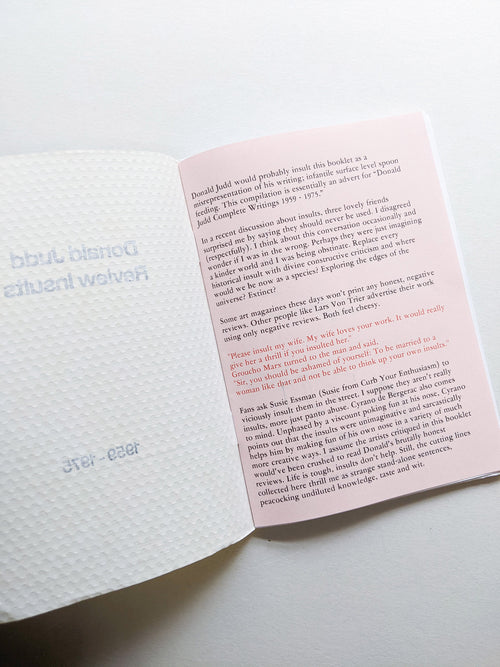 Donald Judd
Review Insults
1959 - 1975
Donald Judd would probably insult this booklet as a
misrepresentation of his writing; infantile surface level spoon
feeding. This compilation is essentially an advert for "Donald
Judd Complete Writings 1959 - 1975."
In a recent discussion about insults, three lovely friends
surprised me by saying they should never be used. I disagreed
(respectfully). I think about this conversation occasionally and
wonder if I was in the wrong. Perhaps they were just imagining
a kinder world and I was being obstinate. Replace every
historical insult with divine constructive criticism and where
would we be now as a species? Exploring the edges of the
universe? Extinct?
Some art magazines these days won't print any honest, negative
reviews. Other people like Lars Von Trier advertise their work
using only negative reviews. Both feel cheesy.
"Please insult my wife. My wife loves your work. It would really
give her a thrill if you insulted her."
Groucho Marx turned to the man and said,
"Sir, you should be ashamed of yourself. To be married to a
woman like that and not be able to think up your own insults."
Fans ask Susie Essman (Susie from Curb Your Enthusiasm) to
viciously insult them in the street. I suppose they aren't really
insults, more just panto abuse. Cyrano de Bergerac also comes
to mind. Unphased by a viscount poking fun at his nose, Cyrano
points out that the insults were unimaginative and sarcastically
helps him by making fun of his own nose in a variety of much
more creative ways. I assume the artists critiqued in this booklet
would've been crushed to read Donald's brutally honest
reviews. Life is tough, insults don't help. Still, the cutting lines
collected here thrill me as strange stand-alone sentences,
peacocking undiluted knowledge, taste and wit.